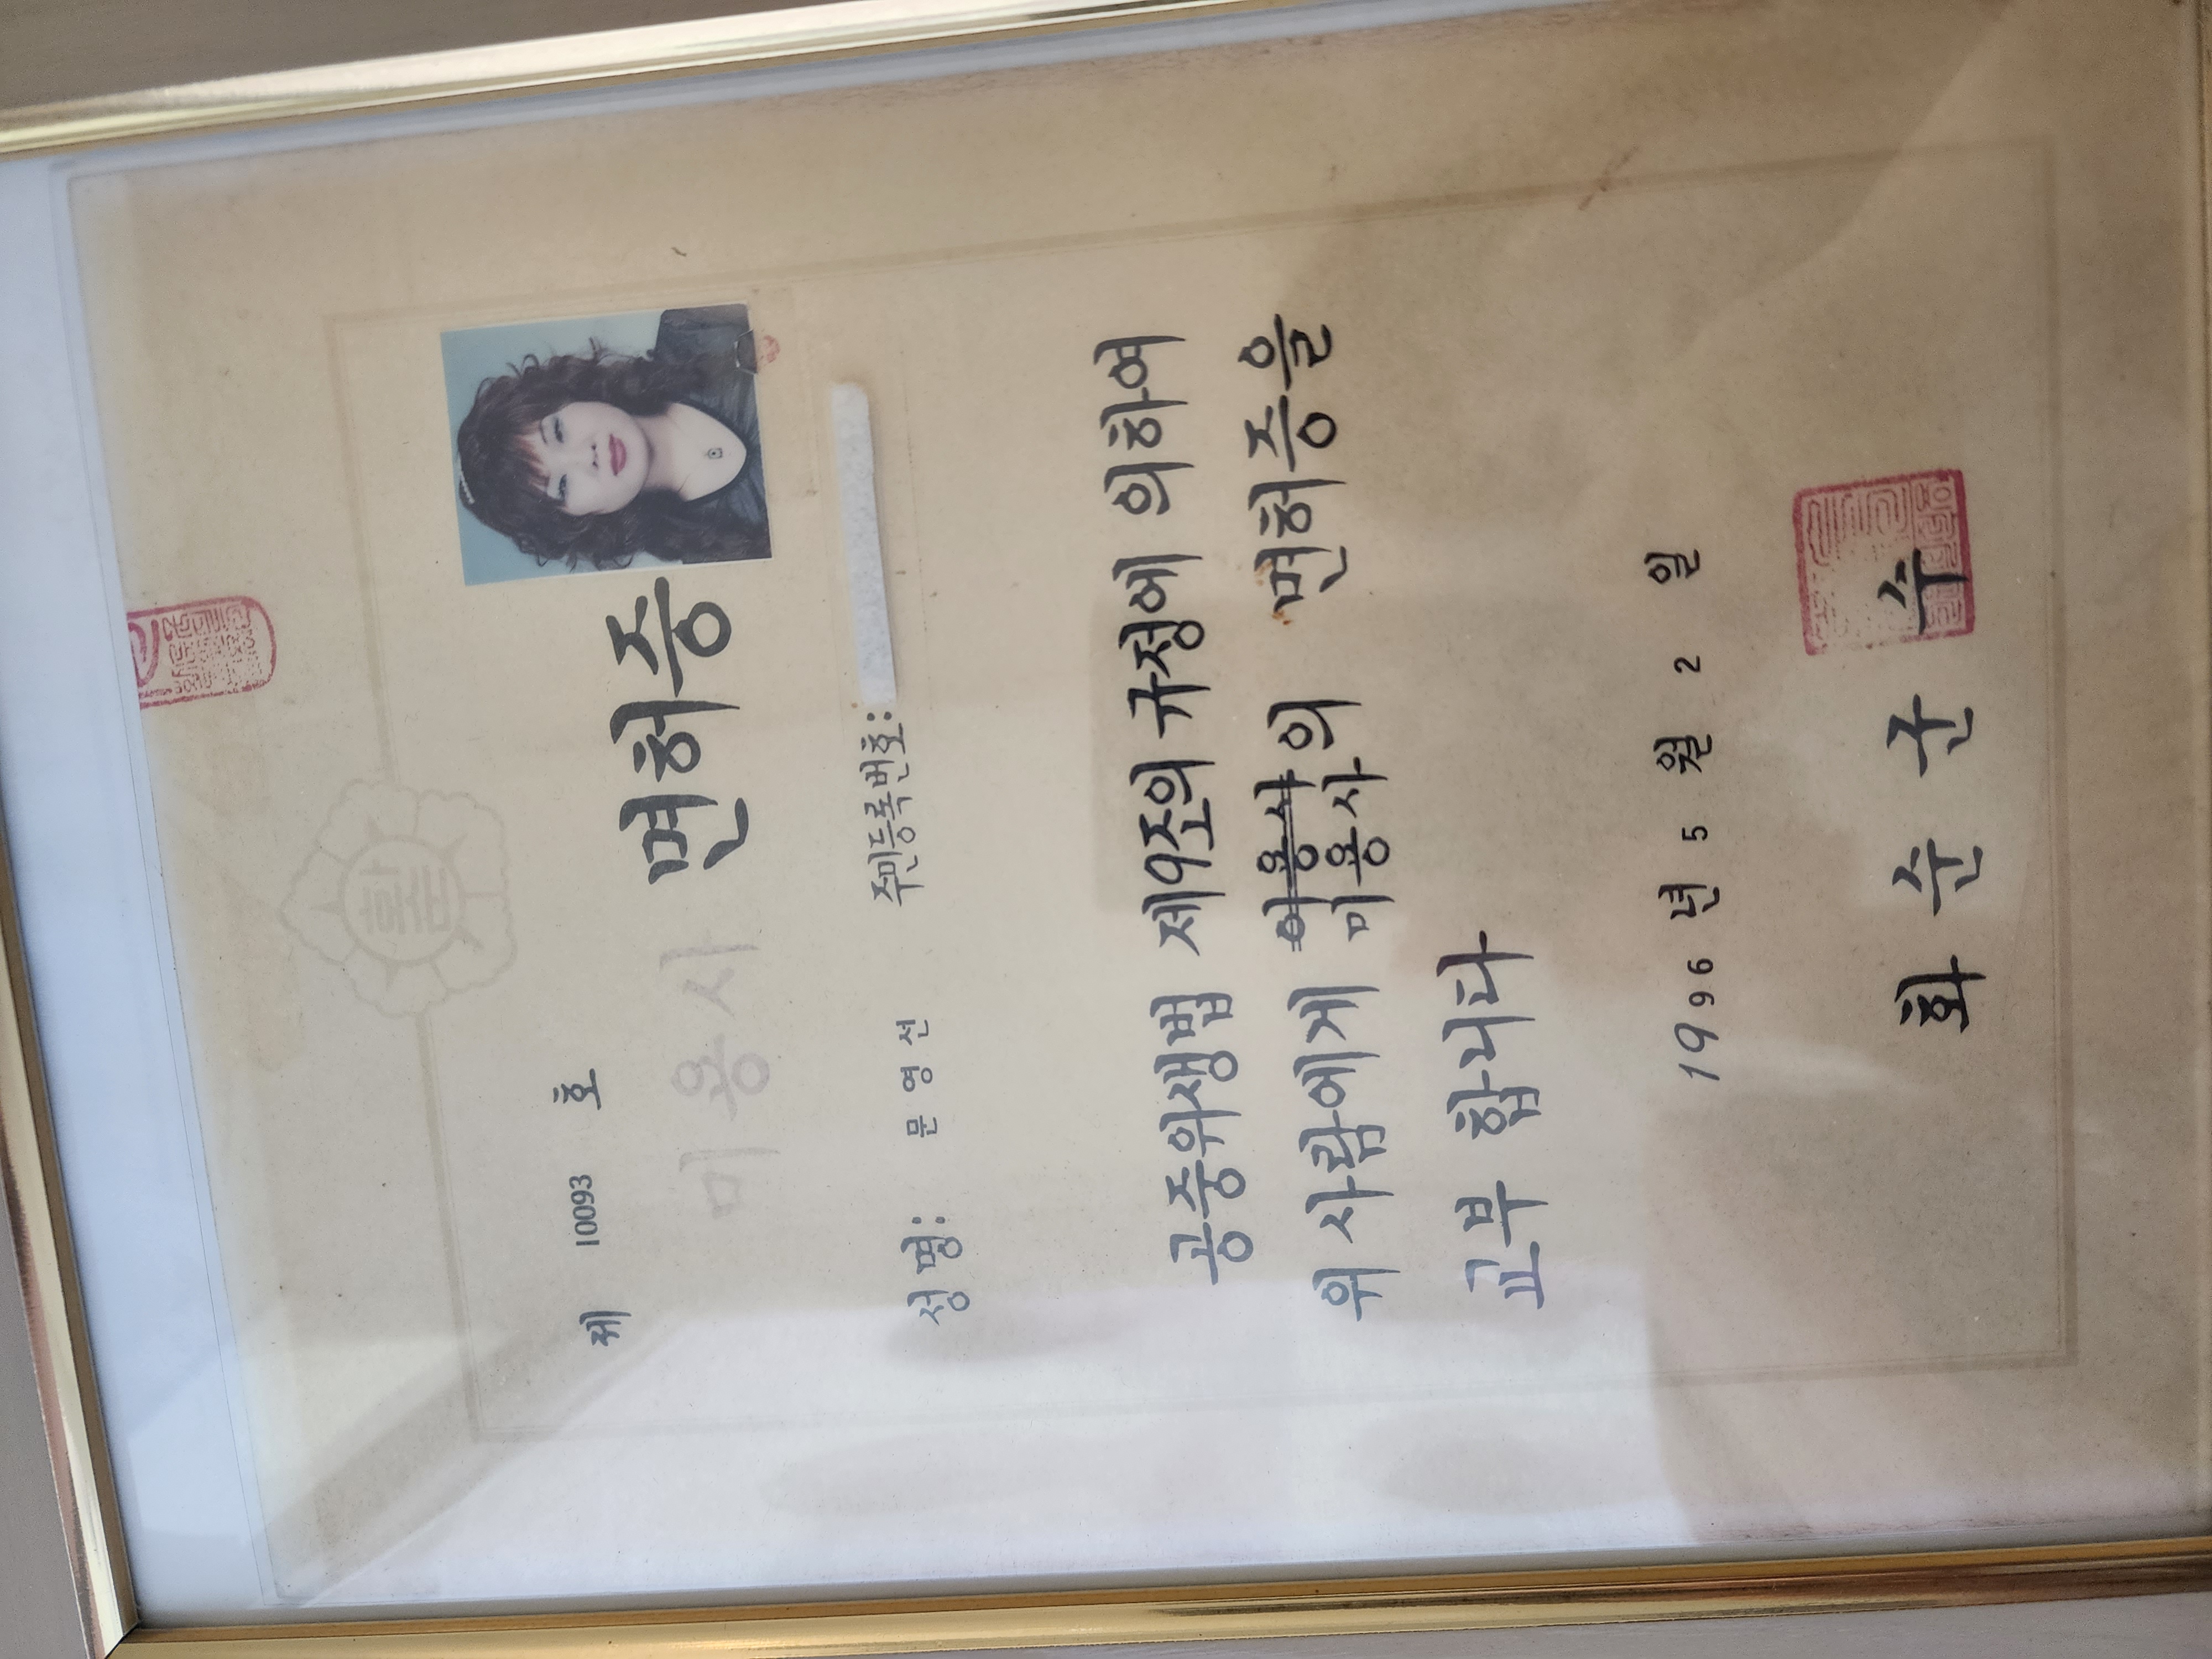 제 10093 호
미용사 면허증
성명: 문영선 주민등록번호:
공중위생법 제9조의 규정에 의하여
위 사람에게 이용사 의 면허증을
미용사
교부 합니다
1996 년 5 월 2 일
화 순 군 수